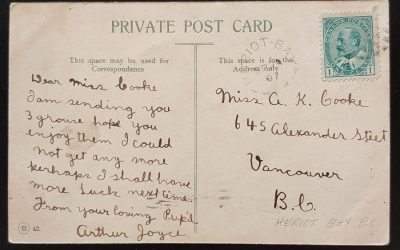 PRIVATE POST CARD
This space may be used for
Correspondence
This space is for the
Address only
CANADA POSTAGE
1 1
HERIOT-BAY
07
Dear Miss Cooke
I am sending you
3 grouse hope you
enjoy them I could
not get any more
perhaps I shall have
more luck next time.
From your loving Pupil
Arthur Joyce.
Miss A. K. Cooke
645 Alexander Steet
Vancouver
B.C.
HERIOT BAY B.C.
B 42